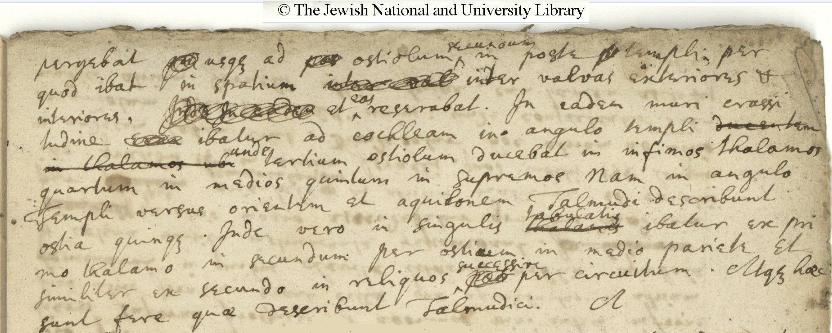 © The Jewish National and University Library
pergebat usqꝫ ad ostiolum secundum in poste templi, per
quod ibat in spatium inter valvas exteriores &
interiores, et eas reserabat. In eadem muri crassi
tudine ibatur ad cochleam in angulo templi ducentem
in thalamos ubi unde tertium ostiolum ducebat in infimos thalamos
quartum in medios quintum in supremos Nam in angulo
Templi versus orientem et aquilonem Talmudici describunt
ostia quinqꝫ. Inde vero in singulis thalamis tabulatis ibatur ex pri
mo thalamo in secundum per ostium in medio pariete et
similiter ex secundo in reliquos successive per circuitum. Atqꝫ hæc
sunt fere quæ describunt Talmudici.